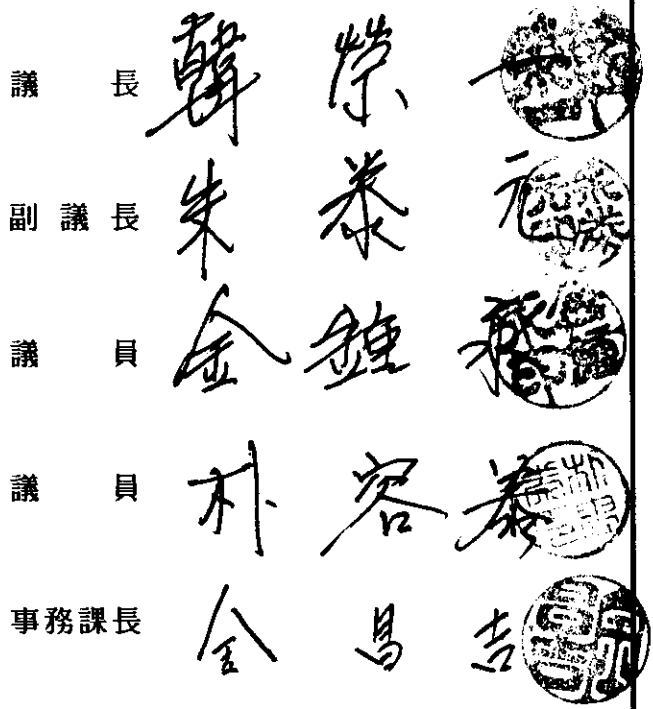 議長 韓榮一
副議長 朱泰元
議員 金鍾
議員 朴容泰
事務課長 全昌吉